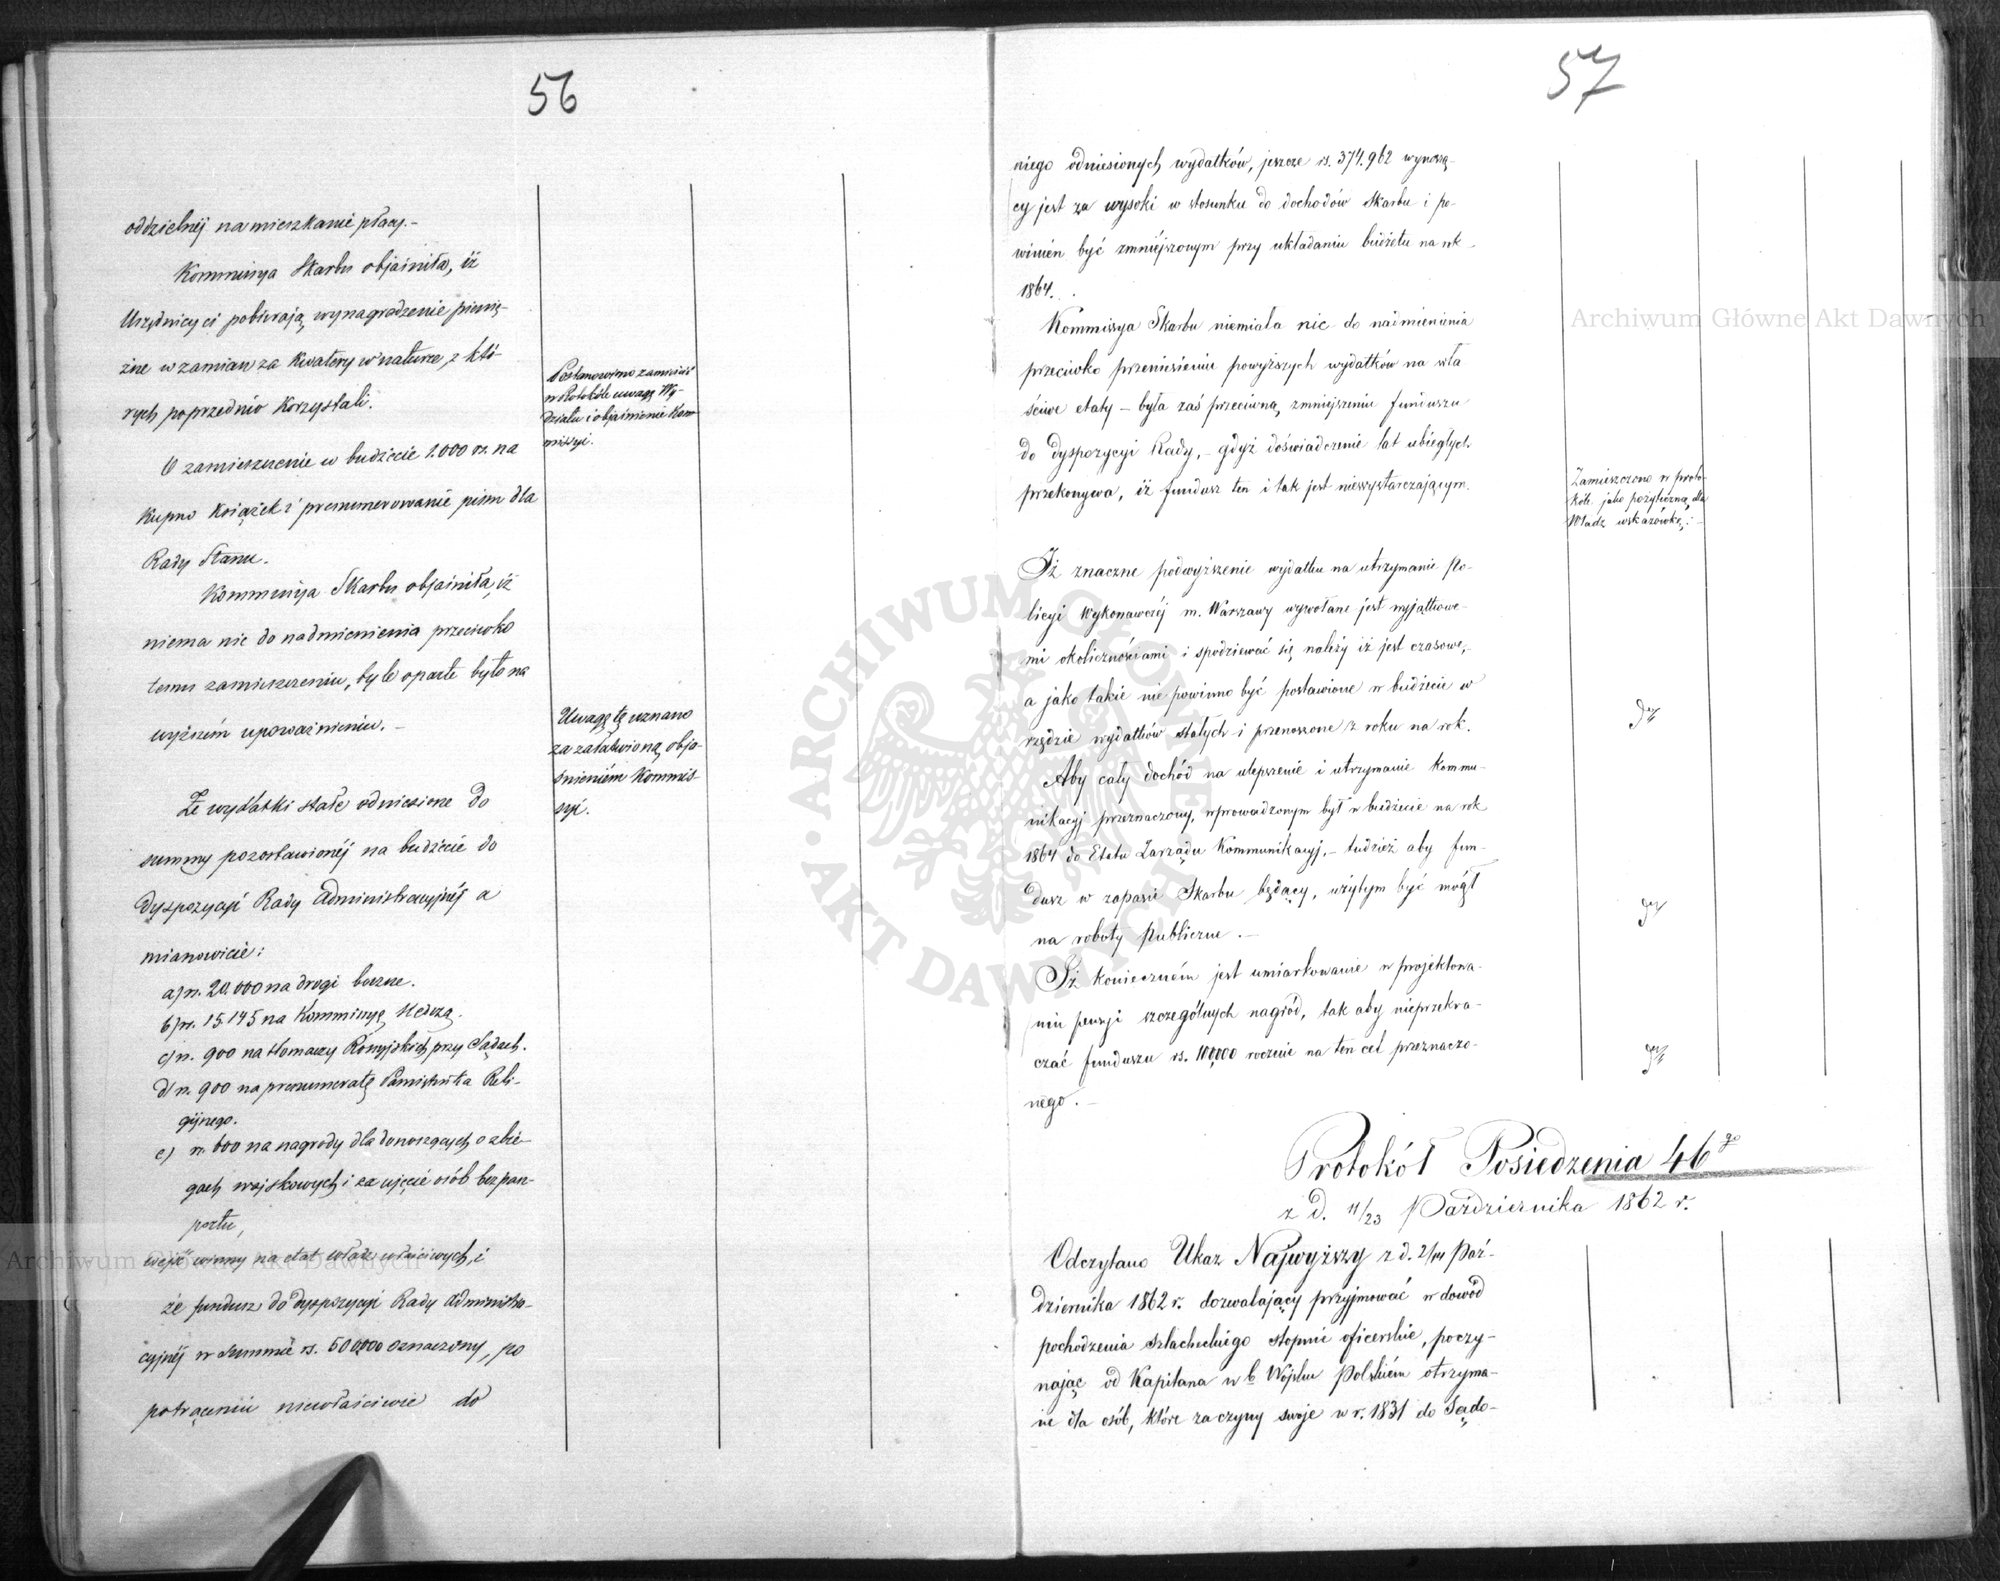 56
oddzielnéj na mieszkanie płacy.-
Kommissya Skarbu objaśniła, iż
Urzędnicy ci pobierają wynagrodzenie pienię-
żne w zamian za kwatery w naturze, z któ-
rych poprzednio korzystali.
Postanowiono zamieścić
w Protokóle uwagę Wy-
działu i objaśnienie Kom-
missyi.
O zamieszczenie w budżecie 1.000 rs. na
kupno książek i prenumerowanie pism dla
Rady Stanu.
Kommissya Skarbu objaśniła, iż
niema nic do nadmienienia przeciwko
temu zamieszczeniu, byle oparte było na
wyższém upoważnieniu. -
Uwagę tę uznano
za załatwioną obja-
śnieniém Kommis-
syi.
Że wydatki stałe odniesione do
summy pozostawionéj na budżecie do
dyspozycyi Rady Administracyjnéj a
mianowicie:
a) rs. 20.000 na drogi boczne.
b) rs. 15.145 na Kommissyę Śledczą.
c) rs. 900 na tłomaczy Rossyjskich przy Sądach.
d) rs. 900 na prenumeratę Pamiętnika Reli-
gijnego.
e) rs. 600 na nagrody dla donoszących o zbie-
gach wojskowych i za ujęcie osób bez pasz-
portu,
wejść winny na etat władz właściwych, i
że fundusz do dyspozycyi Rady Administra-
cyjnéj w summie rs. 500,000 oznaczony, po
potrąceniu niewłaściwie do
57
niego odniesionych wydatków, jeszcze rs. 374.962 wynoszą-
cy jest za wysoki w stosunku do dochodów Skarbu i po-
winien być zmniejszonym przy układaniu budżetu na rok
1864.
Kommissya Skarbu niemiała nic do nadmienienia
przeciwko przeniesieniu powyższych wydatków na wła
ściwe etaty - była zaś przeciwną zmniejszeniu funduszu
do dyspozycyi Rady, - gdyż doświadczenie lat ubiegłych
przekonywa, iż fundusz ten i tak jest niewystarczającym.
Zamieszczono w proto-
kóle jako pożyteczną dla
Władz wskazówkę. -
Iż znaczne podwyższenie wydatku na utrzymanie Po-
licyi Wykonawczéj m. Warszawy wywołane jest wyjątkowe-
mi okolicznościami i spodziewać się należy iż jest czasowe, -
a jako takie nie powinno być postawione w budżecie w
rzędzie wydatków stałych i przenoszone z roku na rok.
Aby cały dochód na ulepszenie i utrzymanie kommu-
nikacyj przeznaczony, wprowadzonym był w budżecie na rok
1864 do Etatu Zarządu Kommunikacyj, - tudzież aby fun-
dusz w zapasie Skarbu będący, użytym być mógł
na roboty publiczne. -
Iż konieczném jest umiarkowanie w projektowa-
niu pensyi szczególnych nagród, tak aby nieprzekra-
czać funduszu rs. 100,000 rocznie na ten cel przeznaczo-
nego. -
Protokół Posiedzenia 46go
z d. 11/23 Października 1862 r.
Odczytano Ukaz Najwyższy z d. 2/14 Paź-
dziernika 1862 r. dozwalający przyjmować w dowód
pochodzenia szlacheckiego stopnie oficerskie, poczy-
nając od Kapitana w b. Wojsku Polskiém otrzyma-
ne dla osób, które za czyny swoje w r. 1831 do Sądo-
Archiwum Główne Akt Dawnych
Archiwum Główne Akt Dawnych
ARCHIWUM GŁÓWNE · AKT DAWNYCH ·